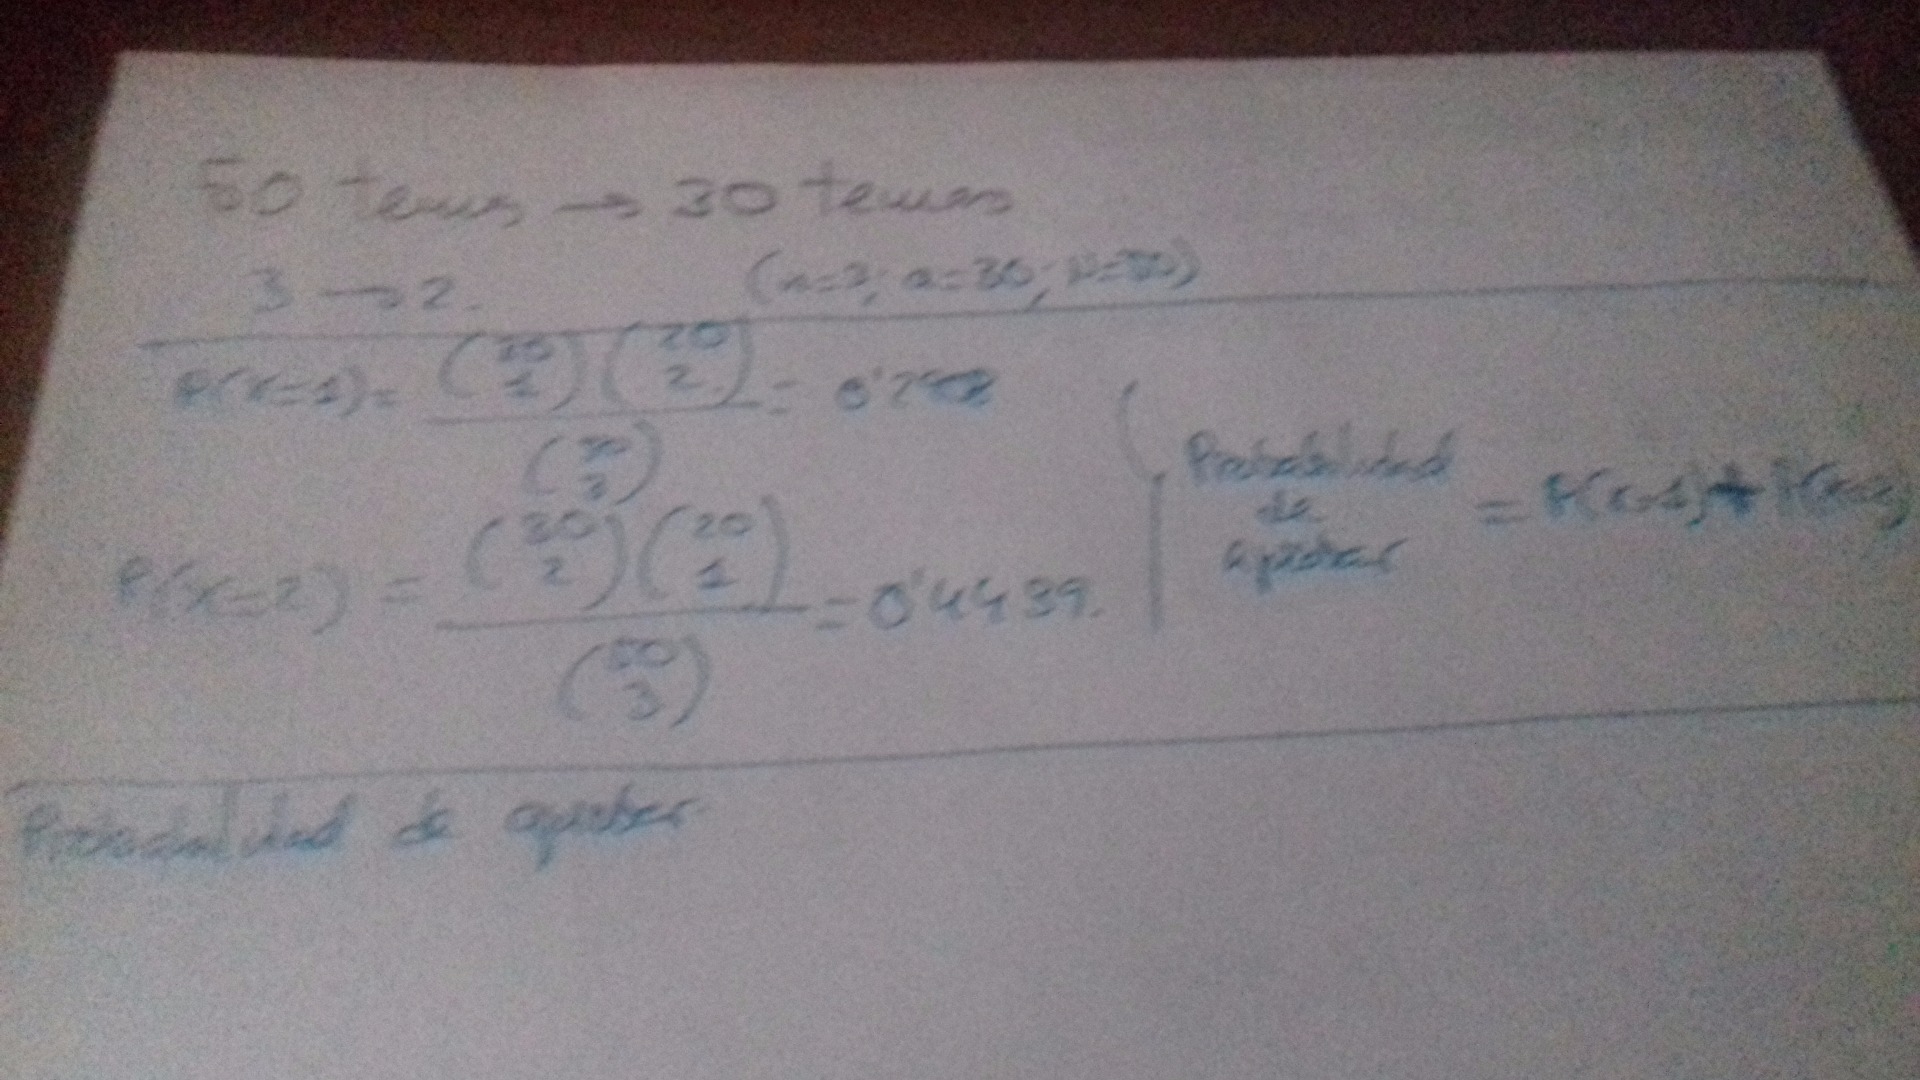 50 temas → 30 temas
3 → 2. (n=3; a=30; N=50)
P(x=1) = (30 1) (20 2) / (50 3) = 0'2
P(x=2) = (30 2) (20 1) / (50 3) = 0'4439.
Probabilidad de aprobar = P(x=1) + P(x=2)
Probabilidad de aprobar